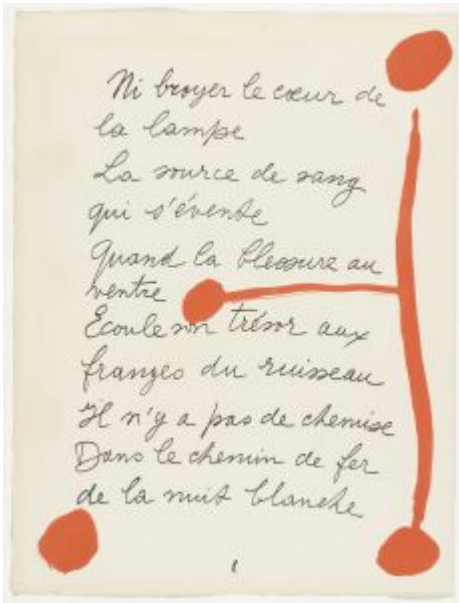 Ni broyer le cœur de
la lampe
La source de sang
qui s'évente
Quand la blessure au
ventre
Écoule son trésor aux
franges du ruisseau
Il n'y a pas de chemise
Dans le chemin de fer
de la nuit blanche
8